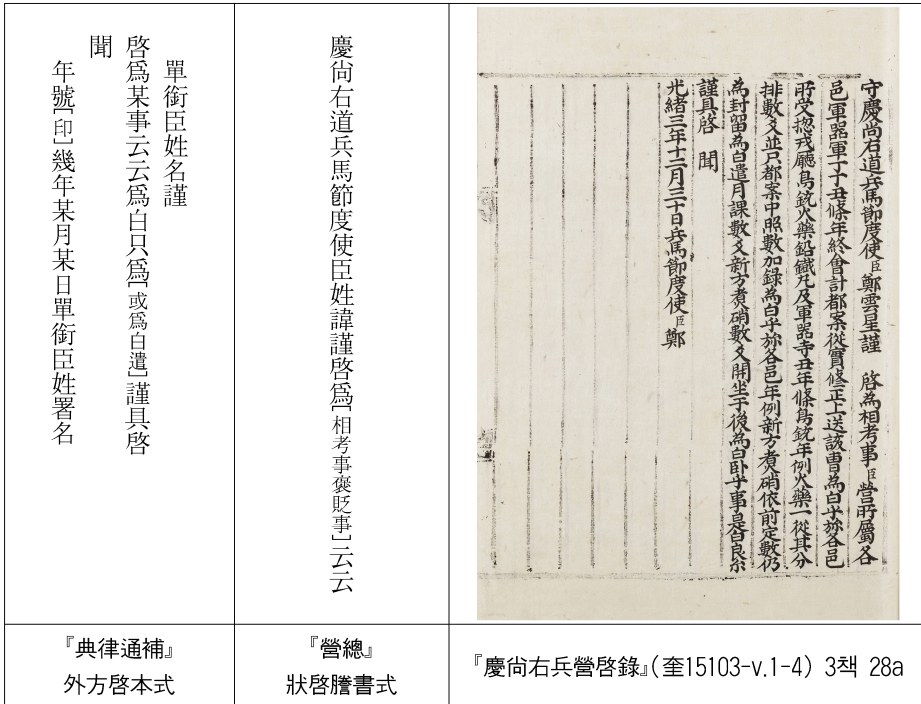 單銜臣姓名謹
啓爲某事云云爲白只爲[或爲白遣]謹具啓
聞
年號[印]幾年某月某日單銜臣姓署名
慶尙右道兵馬節度使臣姓諱謹啓爲[相考事褒貶事]云云
守慶尙右道兵馬節度使臣鄭雲星謹 啓為相考事臣營所屬各
邑軍器軍丁丁丑條年終會計都案從實修正上送該曹為白乎旀各邑
所受摠戎廳鳥銃火藥鉛鐵丸及軍器寺丑年條鳥銃年例火藥一從其分
排數爻並只都案中照數加錄為白乎旀各邑年例新方煑硝依前定數仍
為封留為白遣月課數爻新方煑硝數爻開坐于後為白臥乎事是白良尒
謹具啓 聞
光緒三年十二月三十日兵馬節度使臣鄭
『典律通補』
外方啓本式
『營總』
狀啓謄書式
『慶尙右兵營啓錄』(奎15103-v.1-4) 3책 28a